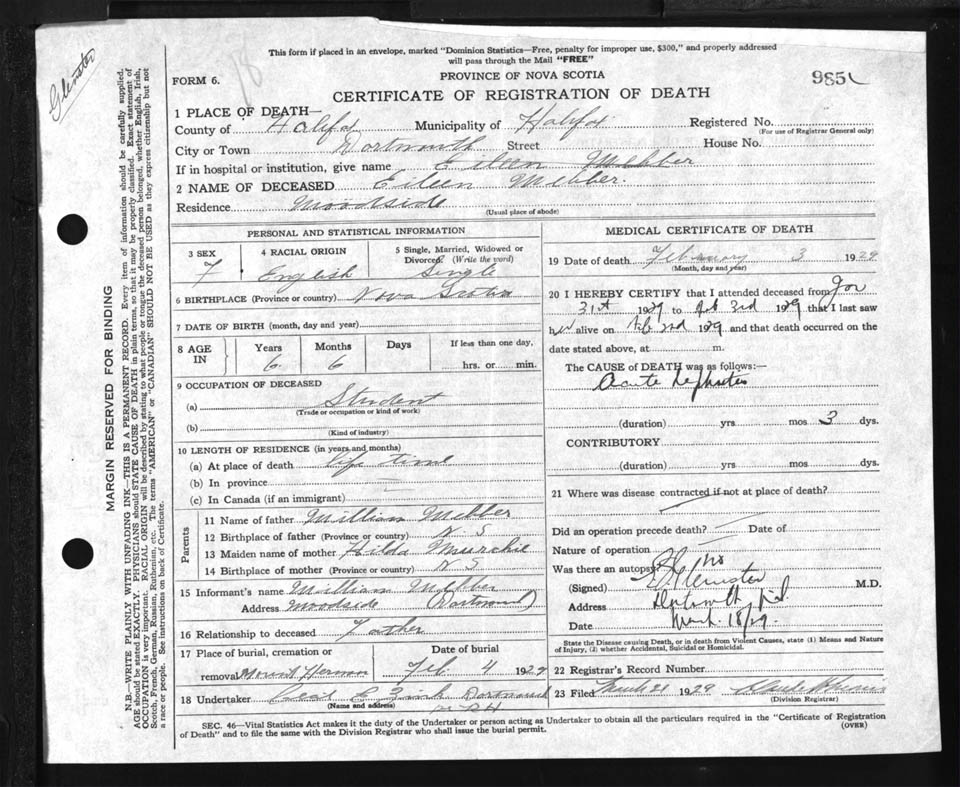 This form if placed in an envelope, marked "Dominion Statistics—Free, penalty for improper use, $300," and properly addressed
will pass through the Mail "FREE"
Glenister
18
FORM 6.
PROVINCE OF NOVA SCOTIA
985
CERTIFICATE OF REGISTRATION OF DEATH
1 PLACE OF DEATH—
County of Halifax Municipality of Halifax Registered No.
(For use of Registrar General only)
City or Town Dartmouth Street House No.
If in hospital or institution, give name Eileen Webber
2 NAME OF DECEASED Eileen Webber.
Residence Woodside
(Usual place of abode)
PERSONAL AND STATISTICAL INFORMATION
3 SEX 4 RACIAL ORIGIN 5 Single, Married, Widowed or
Divorced? (Write the word)
F English Single
6 BIRTHPLACE (Province or country) Nova Scotia
7 DATE OF BIRTH (month, day and year)
8 AGE IN Years Months Days If less than one day,
6 6 hrs. or min.
9 OCCUPATION OF DECEASED
(a) Student
(Trade or occupation or kind of work)
(b)
(Kind of industry)
10 LENGTH OF RESIDENCE (in years and months)
(a) At place of death Life time
(b) In province
(c) In Canada (if an immigrant)
Parents
11 Name of father William Webber
12 Birthplace of father (Province or country) N. S
13 Maiden name of mother Hilda Murchie
14 Birthplace of mother (Province or country) N S
15 Informant's name William Webber
Address Woodside (Dartmouth)
16 Relationship to deceased Father
17 Place of burial, cremation or Date of burial
removal Mount Hermon Feb 4 1929
18 Undertaker Dartmouth
(Name and address)
MEDICAL CERTIFICATE OF DEATH
19 Date of death February 3 1929
(Month, day and year)
20 I HEREBY CERTIFY that I attended deceased from Jan
31st 1929 to Feb 3rd 1929 that I last saw
her alive on Feb 2nd 1929 and that death occurred on the
date stated above, at m.
The CAUSE of DEATH was as follows:—
Acute Nephritis
(duration) yrs mos 3 dys.
CONTRIBUTORY
(duration) yrs mos dys.
21 Where was disease contracted if not at place of death?
Did an operation precede death? Date of
Nature of operation
Was there an autopsy? no
(Signed) Glenister M.D.
Address Dartmouth N.S.
Date March 18/29.
State the Disease causing Death, or in death from Violent Causes, state (1) Means and Nature
of Injury, (2) whether Accidental, Suicidal or Homicidal.
22 Registrar's Record Number
23 Filed March 21 1929
(Division Registrar)
SEC. 46—Vital Statistics Act makes it the duty of the Undertaker or person acting as Undertaker to obtain all the particulars required in the "Certificate of Registration
of Death" and to file the same with the Division Registrar who shall issue the burial permit.
(OVER)
MARGIN RESERVED FOR BINDING
N.B.—WRITE PLAINLY WITH UNFADING INK—THIS IS A PERMANENT RECORD. Every item of information should be carefully supplied.
AGE should be stated EXACTLY. PHYSICIANS should STATE CAUSE OF DEATH in plain terms, so that it may be properly classified. Exact statement of
OCCUPATION is very important. RACIAL ORIGIN will be described by stating to what people or tongue the deceased person belonged, whether English, Irish,
Scotch, French, German, Russian, Ruthenian, etc. The terms "AMERICAN" or "CANADIAN" SHOULD NOT BE USED as they express citizenship but not
a race or people. See instructions on back of Certificate.